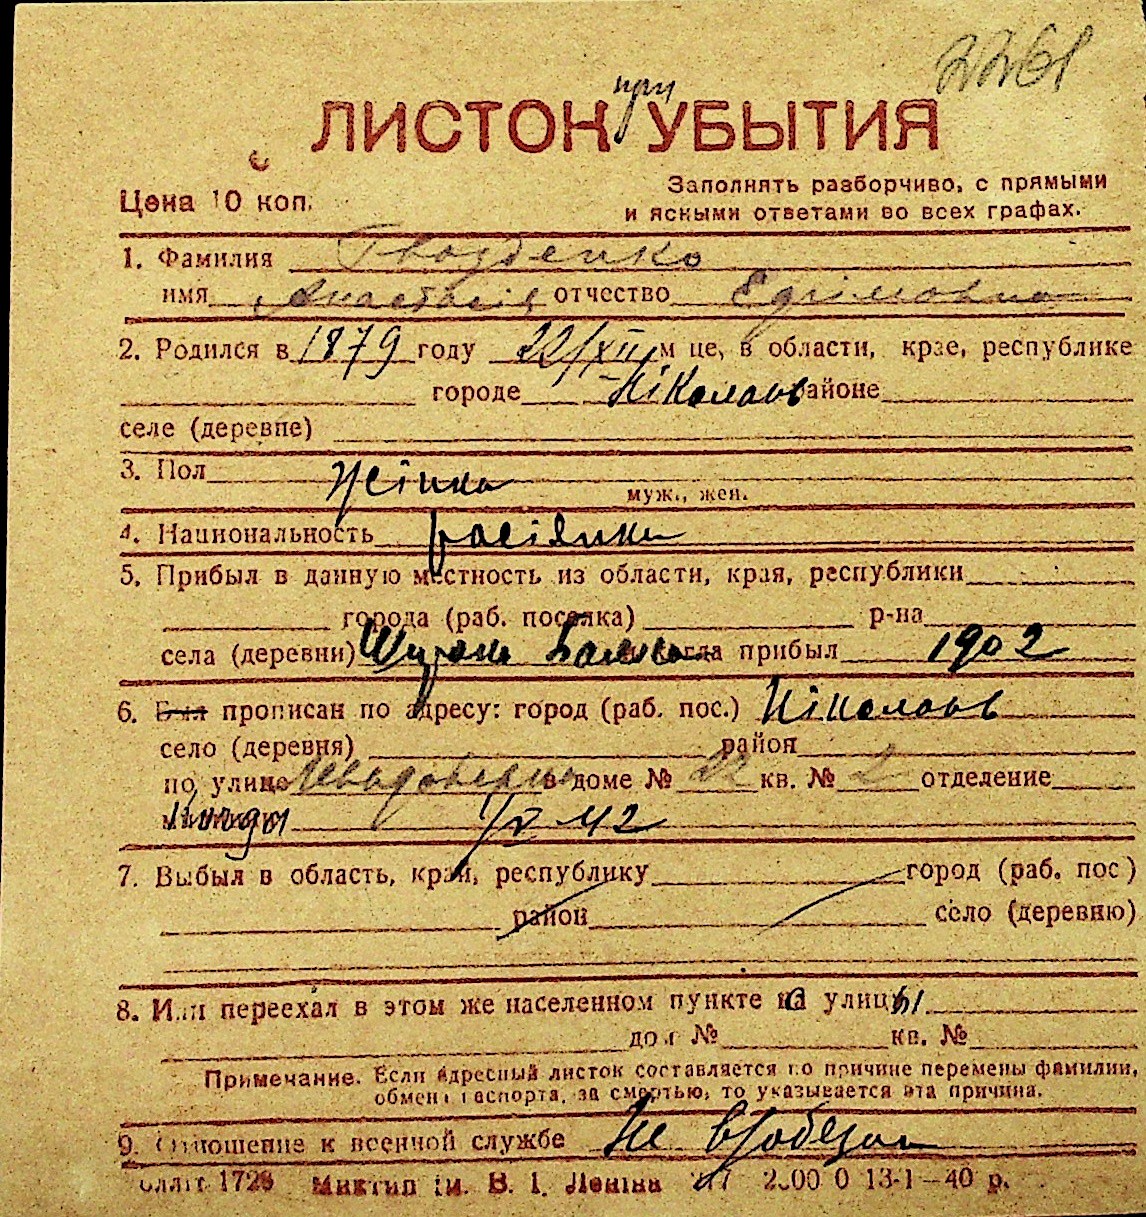 2261
ЛИСТОК при УБЫТИЯ
Цена 10 коп.
Заполнять разборчиво, с прямыми
и ясными ответами во всех графах.
1. Фамилия Гвозденко
имя Анастасія отчество Єфімовна
2. Родился в 1879 году 22/XII м це, в области, крае, республике
городе Ніколаєв районе
селе (деревне)
3. Пол Жінка
муж., жен.
4. Национальность росіянка
5. Прибыл в данную местность из области, края, республики
города (раб. поселка) р-на
села (деревни) Балка и когда прибыл 1902
6. Был прописан по адресу: город (раб. пос.) Ніколаєв
село (деревня) район
по улице в доме № 22 кв. № 2 отделение
1/V 42
7. Выбыл в область, край, республику город (раб. пос)
район село (деревню)
8. Или переехал в этом же населенном пункте с улицы
дом № кв. №
Примечание. Если адресный листок составляется по причине перемены фамилии,
обмена паспорта, за смертью, то указывается эта причина.
9. Отношение к военной службе Не
1728 Миктип ім. В. І. Леніна 13-1—40 р.